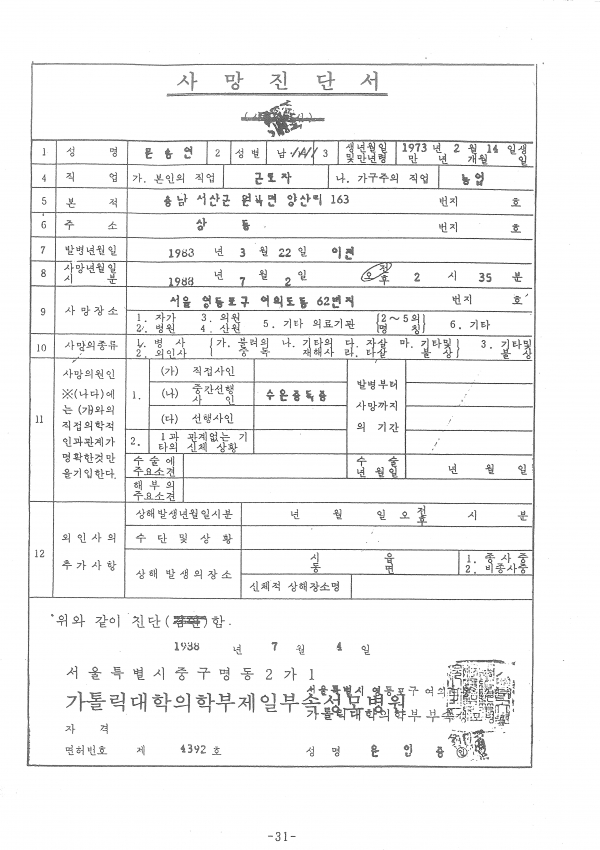 사 망 진 단 서
1 성 명 문 송 면 2 성별 남 3 생년월일 및만년령 1973 년 2 월 14 일생 만 년 개월 일
4 직 업 가. 본인의 직업 근로자 나. 가구주의 직업 농업
5 본 적 충남 서산군 원북면 양산리 163 번지 호
6 주 소 상 동 번지 호
7 발병년월일 1988 년 3 월 22 일 이전
8 사망년월일 시 분 1988 년 7 월 2 일 오 전 후 2 시 35 분
9 사망장소 서울 영등포구 여의도동 62번지 번지 호
1. 자가 3. 의원 5. 기타 의료기관 (2~5의 명 칭) 6. 기타
2. 병원 4. 산원
10 사망의종류 1. 병 사 (가. 불려의 나. 기타의 다. 자살 마. 기타및 3. 기타및
2. 외인사 중 독 재해사 라. 타살 불 상) 불 상
11 사망의원인 ※(나다)에는 (가)와의 직접의학적 인과관계가 명확한것만 을기입한다.
1. (가) 직접사인
(나) 중간선행 사 인 수은중독증
(다) 선행사인
발병부터 사망까지 의 기간
2. 1과 관계없는 기타의 신체 상황
수술에 주요소견 수 술 년 월 일 년 월 일
해부의 주요소견
12 외인사의 추가사항
상해발생년월일시분 년 월 일 오 전 후 시 분
수 단 및 상 황
상해 발생의장소 시 동 읍 면 1. 종사중 2. 비종사중
신체적 상해장소명
위와 같이 진단( )함.
1988 년 7 월 4 일
서울특별시중구명동2가1
서울특별시 영등포구 여의
가톨릭대학의학부제일부속성모병원
가톨릭대학의학부 부속성모병원
자 격
면허번호 제 4392 호 성 명 윤 인 중
-31-